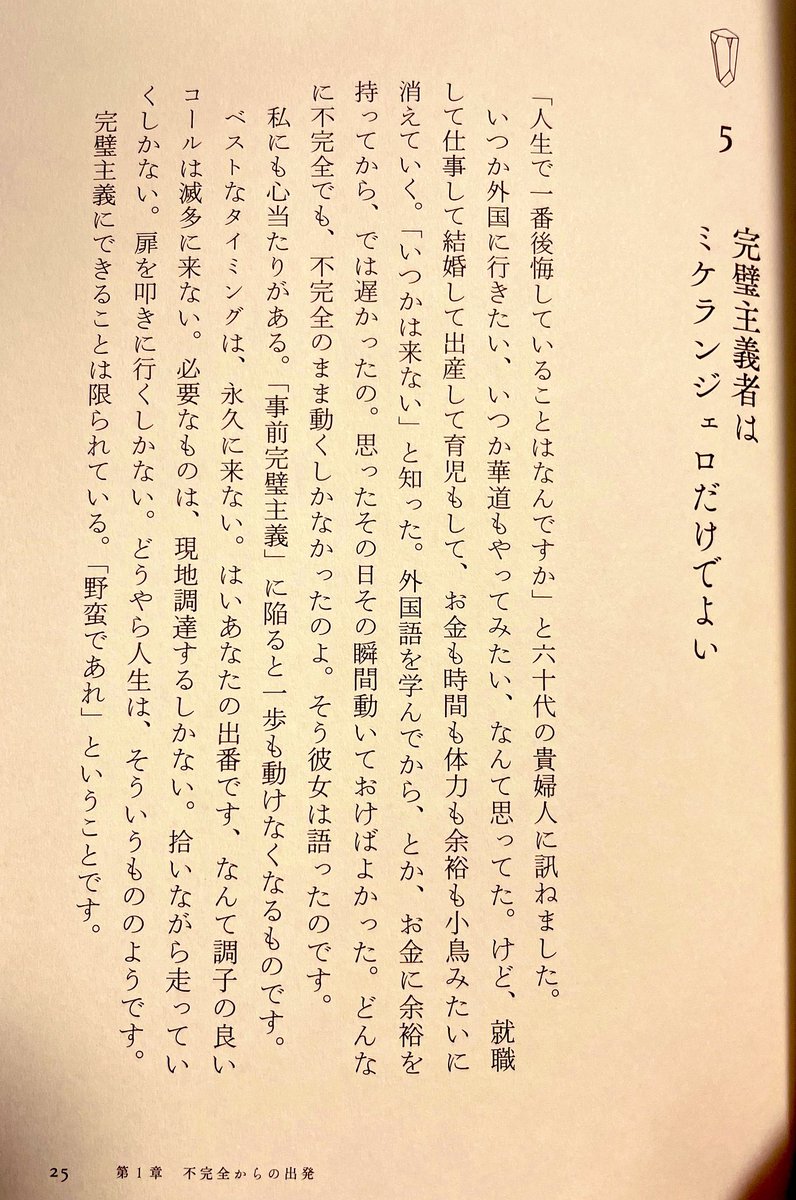 5
完璧主義者は
ミケランジェロだけでよい
「人生で一番後悔していることはなんですか」と六十代の貴婦人に訊ねました。
いつか外国に行きたい、いつか華道もやってみたい、なんて思ってた。けど、就職
して仕事して結婚して出産して育児もして、お金も時間も体力も余裕も小鳥みたいに
消えていく。「いつかは来ない」と知った。外国語を学んでから、とか、お金に余裕を
持ってから、では遅かったの。思ったその日その瞬間動いておけばよかった。どんな
に不完全でも、不完全のまま動くしかなかったのよ。そう彼女は語ったのです。
私にも心当たりがある。「事前完璧主義」に陥ると一歩も動けなくなるものです。
ベストなタイミングは、永久に来ない。はいあなたの出番です、なんて調子の良い
コールは滅多に来ない。必要なものは、現地調達するしかない。拾いながら走ってい
くしかない。扉を叩きに行くしかない。どうやら人生は、そういうもののようです。
完璧主義にできることは限られている。「野蛮であれ」ということです。
25 第1章 不完全からの出発